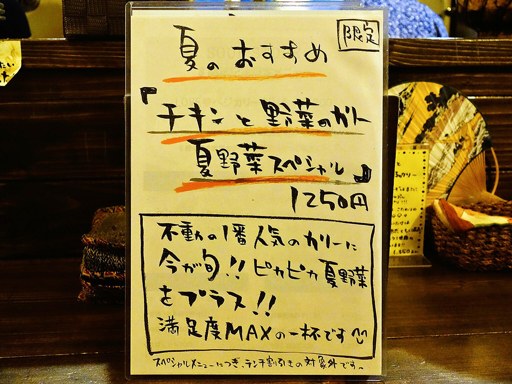 限定
夏のおすすめ
『チキンと野菜のカリー
夏野菜スペシャル』
1250円
不動の1番人気のカリーに
今が旬!! ピカピカ夏野菜
をプラス!!
満足度MAXの一杯です
スペシャルメニューにつき、ランチ割引きの対象外です〜